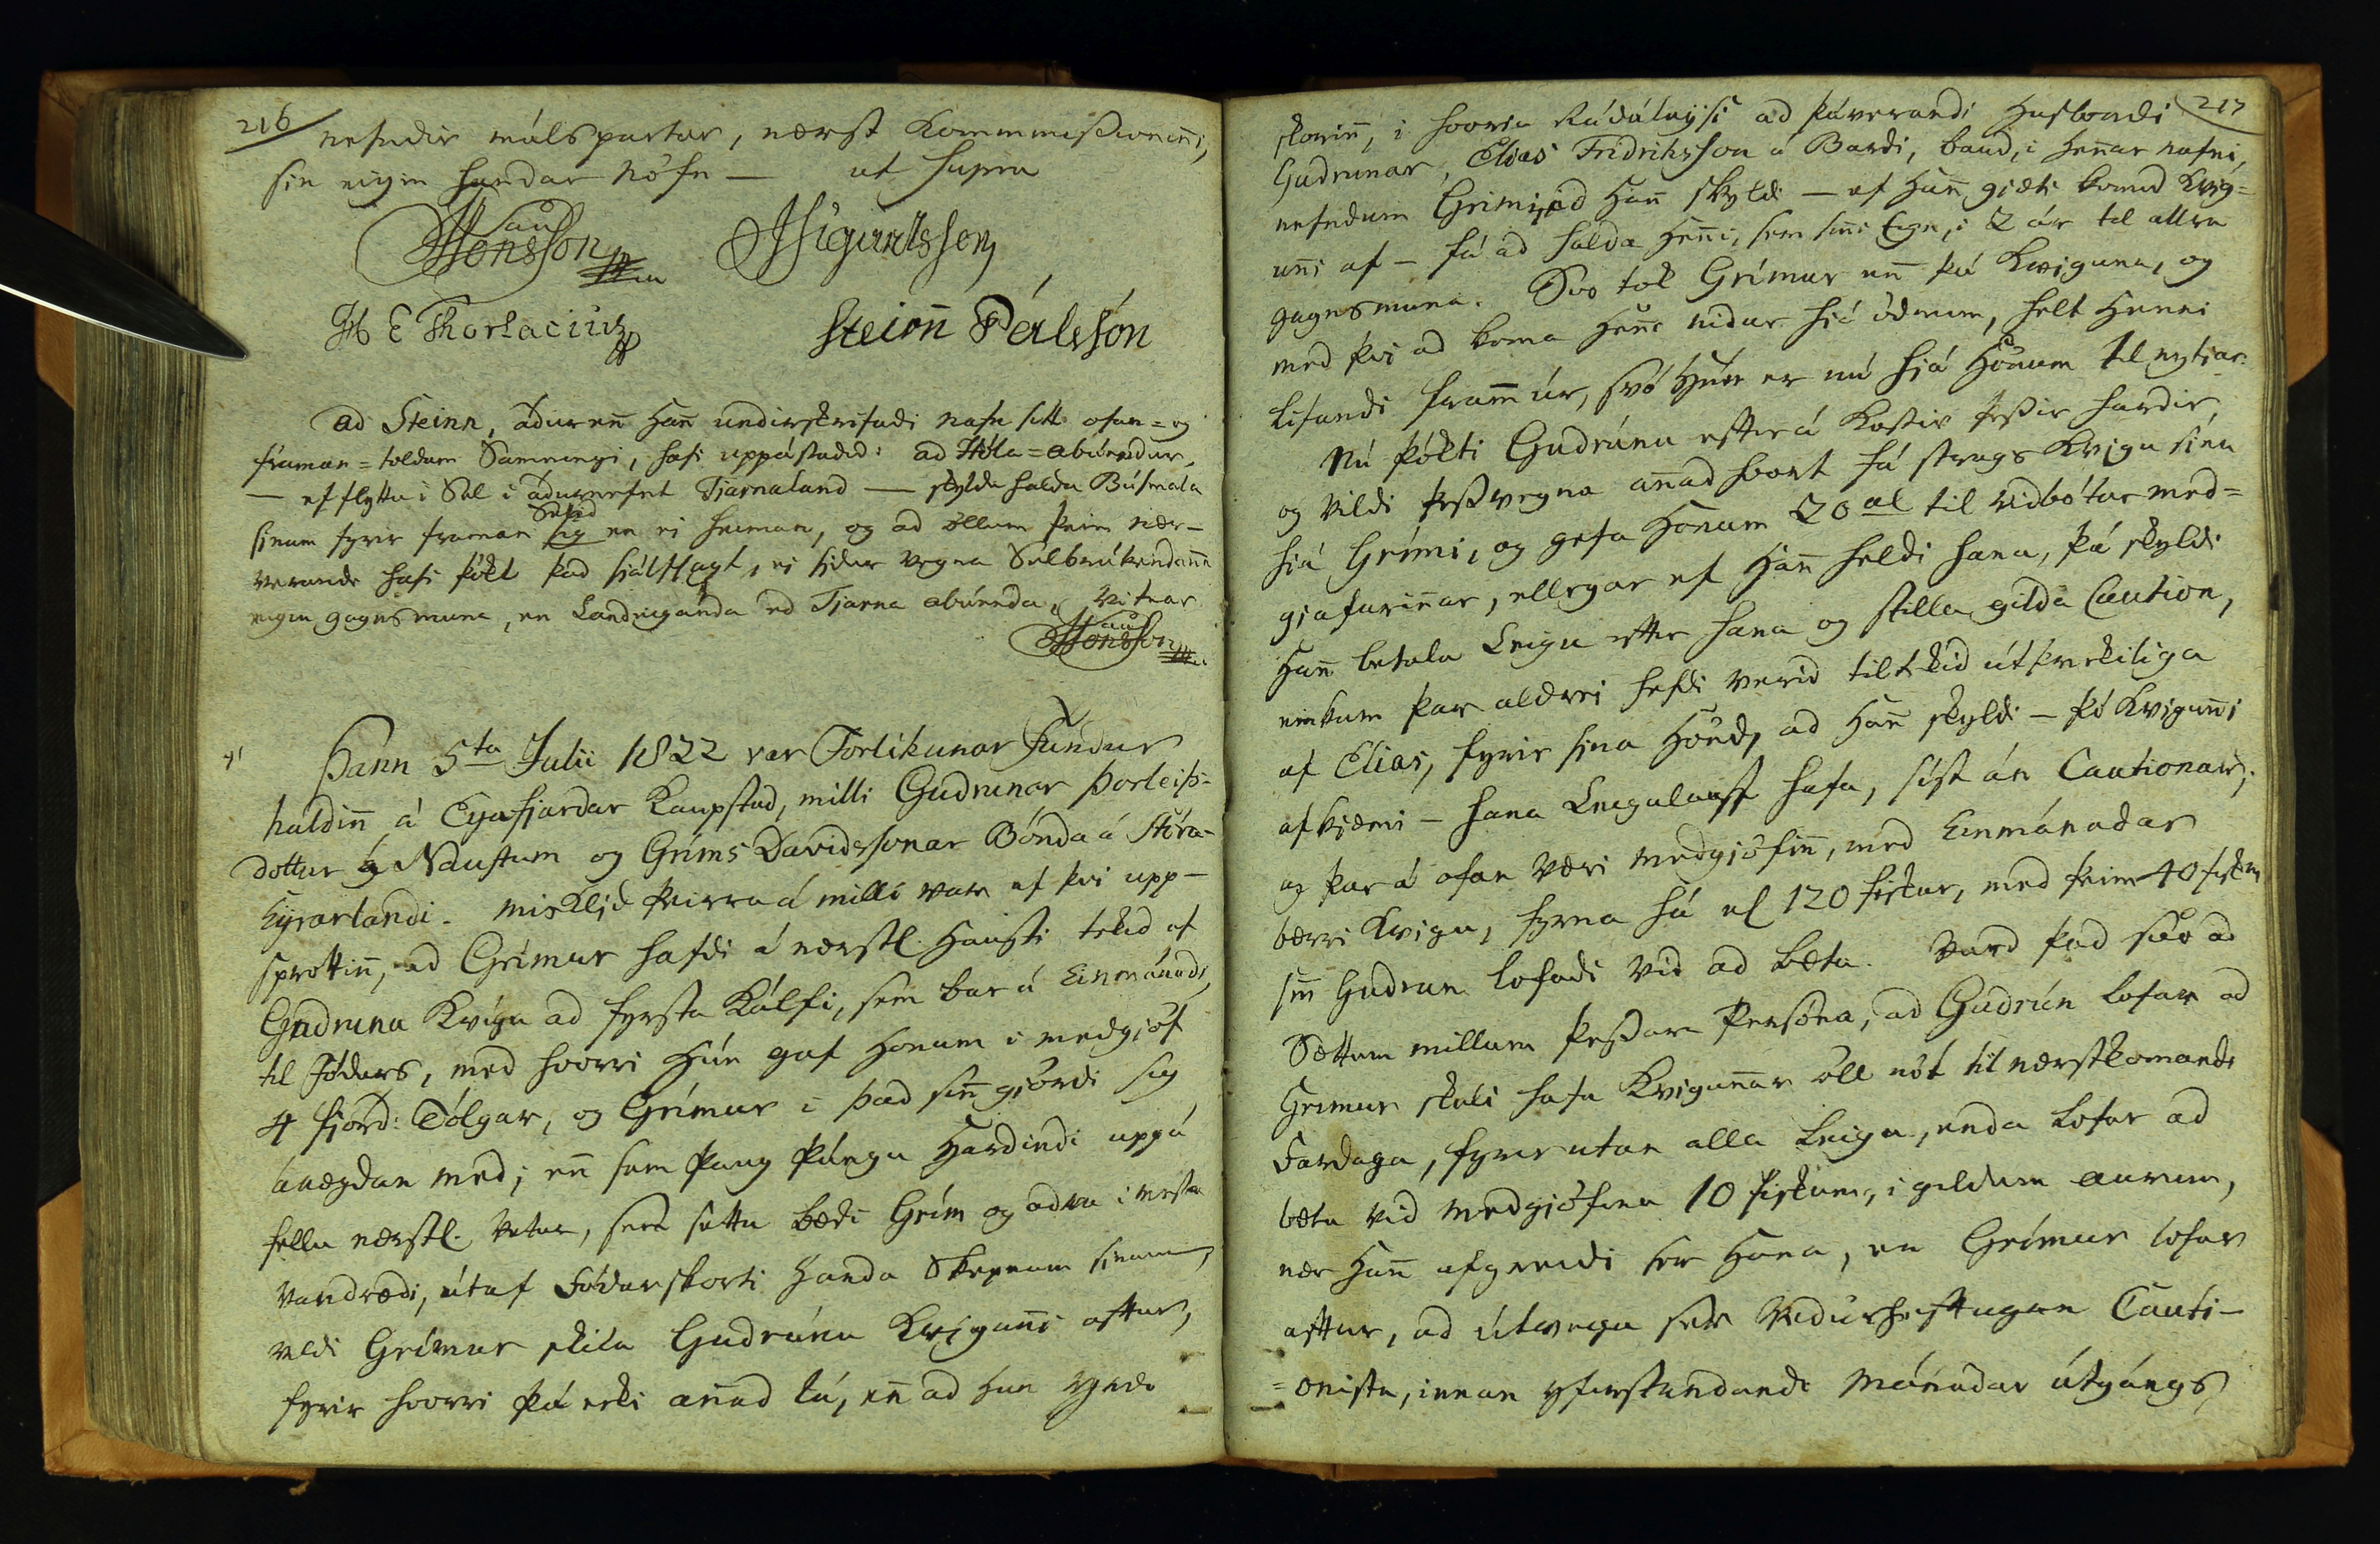 216
nefndir málspartar, nærst Kommmissioninni,
sin eigin handar nöfn — ut supra
HJonsson JSigurdsson
H E Thorlacius Steinn Pálsson
ad Steinn, ádurenn Hann undirskrifadi nafn sitt ofan= og
framan=toldum Samningi, hafi uppástadid: ad Hóla=ábúendur,
— ef flyttu i Sel i ádurnefnt Tjarnaland — skyldu halda Búsmala
sinum fyrir framan Selid en ei heiman, og ad öllum þeim nær-
verandi hafi þókt þad siálfsagt, ei sidur vegna Selbrúkendanna
eigin gagnsmuna, en Landeiganda ed Tjarna ábúenda, Vitnar
HJonsson
Þann 5ta Julii 1822 var Forlikunar Fundur
haldinn á Eyafjardar Kaupstad, milli Gudrunar Þorleifs-
dottur á Naustum og Grims Davidssonar Bónda á Stóra-
Eyrarlandi. Misklid þeirra á milli var af þvi upp-
sprottinn, ad Grímur hafdi á nærstl. Hausti tekid af
Gudrunu Kvigu ad fyrsta Kálfi, sem bar á Einmánudi,
til Fódurs, med hvorri Hún gaf Honum i medgjöf
4 fjórd: Tólgar, og Grímur i þad sinn gjördi sig
ánægdan med; enn sem þaug þúngu Hardindi uppá
fellu nærstl. Vetur, sem settu bædi Grím og adra i mesta
Vandrædi, útaf Fódurskorti Handa Skepnum sinum,
vildi Grímur skila Gudrúnu Kvigunni aftur,
fyrir hvorri þá ecki annad lá, enn ad Hun yrdi
217
skorinn, i hvoriu Rádaleysi ad þáverandi Husbondi
Gudrunar, Elias Fridriksson á Bardi, baud, i Hennar nafni,
nefndum Grimi, ad Hann skyldi — ef Hann giæti komid Kvig=
unni af — fá ad halda Henni, sem sinni Eign, i 2 ár til allra
gagnsmuna. Svo tok Grímur enn þá Kviguna, og
med þvi ad koma Henni nidur hjá ödrum, helt Henni
lifandi framm úr, svo Hún er nú hjá Hönum til nytiar.
Nú þókti Gudrúnu eftirá Kostir þessir hardir,
og vildi þessvegna annad hvort fá strags Kvigu sína
hjá Grími, og gefa Honum 20 al til vidbótar med=
gjafarinnar, ellegar ef Hann heldi hana, þá skyldi
Hann betala Leigu eftir hana og stilla gilda Caution,
einkum þar aldrei hefdi verid tiltekid útþrickiliga
af Elias, fyrir sina Hönd, ad Hann skyldi — þó Kvigunni
afkjæmi — hana Leigulaust hafa, síst án Cautionar;
og þar á ofan væri medgjöfinn, med Einmánadar
bærri Kvigu, fyrna há ef 120 fiskar, med þeim 40 fiskum
sem Gudrun lofadi vid ad bæta. Vard þad svo ad
Sættum millum þessara Persóna, ad Gudrún lofar ad
Grimur skuli hafa Kvigunnar öll nöt til nærstkomandi
Fardaga, fyrir utan alla Leigu, enda lofar ad
bæta vid medgjöfina 10 fiskum, i gildum aurum,
nær Hann afgreidi sér Hana, en Grímur lofar
aftur, ad útvega sér Vedurhæftugan Cauti-
=onista, innan yfirstandandi Mánadar útgángs,